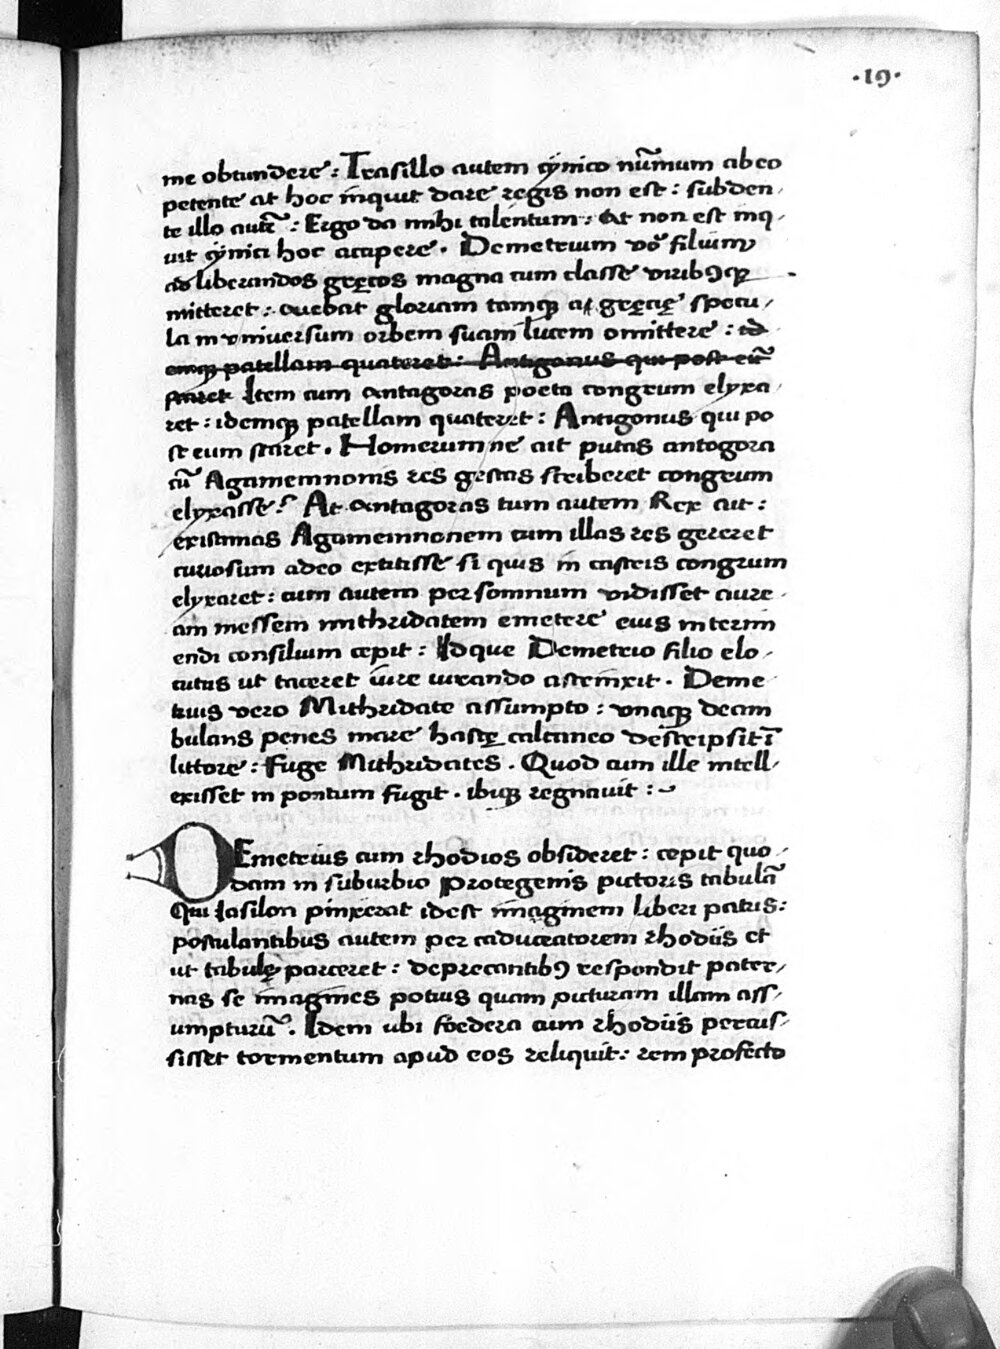 ·19·
me obtundere: Trasillo autem cỹnico nūmum ab eo
petente at hoc inquit dare regis non est: subden,
te illo autē: Ergo da mihi talentum: At non est inq,
uit cỹnici hoc accipere. Demetrium vō filium
ad liberandos gręcos magna cum classe viribꝯqꝫ
mitteret: aiebat gloriam tamqꝫ a gręcię specu,
la in vniversum orbem suam lucem omittere: id
emqꝫ patellam quateret: Antigonus qui post eū
staret Item cum Antagoras poeta congrum elyxa,
ret: idemqꝫ patellam quateret: Antigonus qui po
st eum staret. Homerum ne ait putas antogora
cū Agamemnonis res gestas scriberet congrum
elyxasse? At Antagoras tum autem Rex ait:
existimas Agamemnonem cum illas res gereret
curiosum adeo extitisse si quis in castris congrum
elyxaret: cum autem per somnum vidisset aure,
am messem mithridatem emetere eius interim
endi consilium cepit: Idque Demetrio filio elo,
cutus ut taceret iure iurando astrinxit. Deme
trius vero Mithridate assumpto: vnaqꝫ deam
bulans penes mare hastę calcaneo descripsit ī
littore: Fuge Mithridates. Quod cum ille intell,
exisset in pontum fugit. ibiqꝫ regnavit:~
DEmetrius cum rhodios obsideret: cepit quo,
dam in suburbio Protegenis pictoris tabulā
Qui Iasilon pinxerat idest imaginem liberi patris:
postulantibus autem per caduceatorem rhodiis et
ut tabulę parceret: deprecantibꝯ respondit pater,
nas se imagines potius quam picturam illam ass,
umpturū. Idem ubi foedera cum rhodiis percus,
sisset tormentum apud eos reliquit: rem profecto